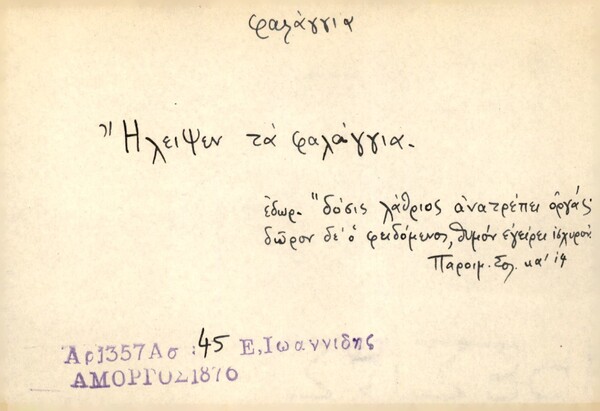 φαλάγγια
Ἤλειψεν τὰ φαλάγγια.
ἐδωρ. "δόσις λάθριος ἀνατρέπει ὀργάς·
δῶρον δὲ ὁ φειδόμενος, θυμὸν ἐγείρει ἰσχυρόν
Παροιμ. Σολ. κα' 14
Αρ]357Ασ : 45 Ε, Ιωαννιδης
ΑΜΟΡΓΟΣ1876